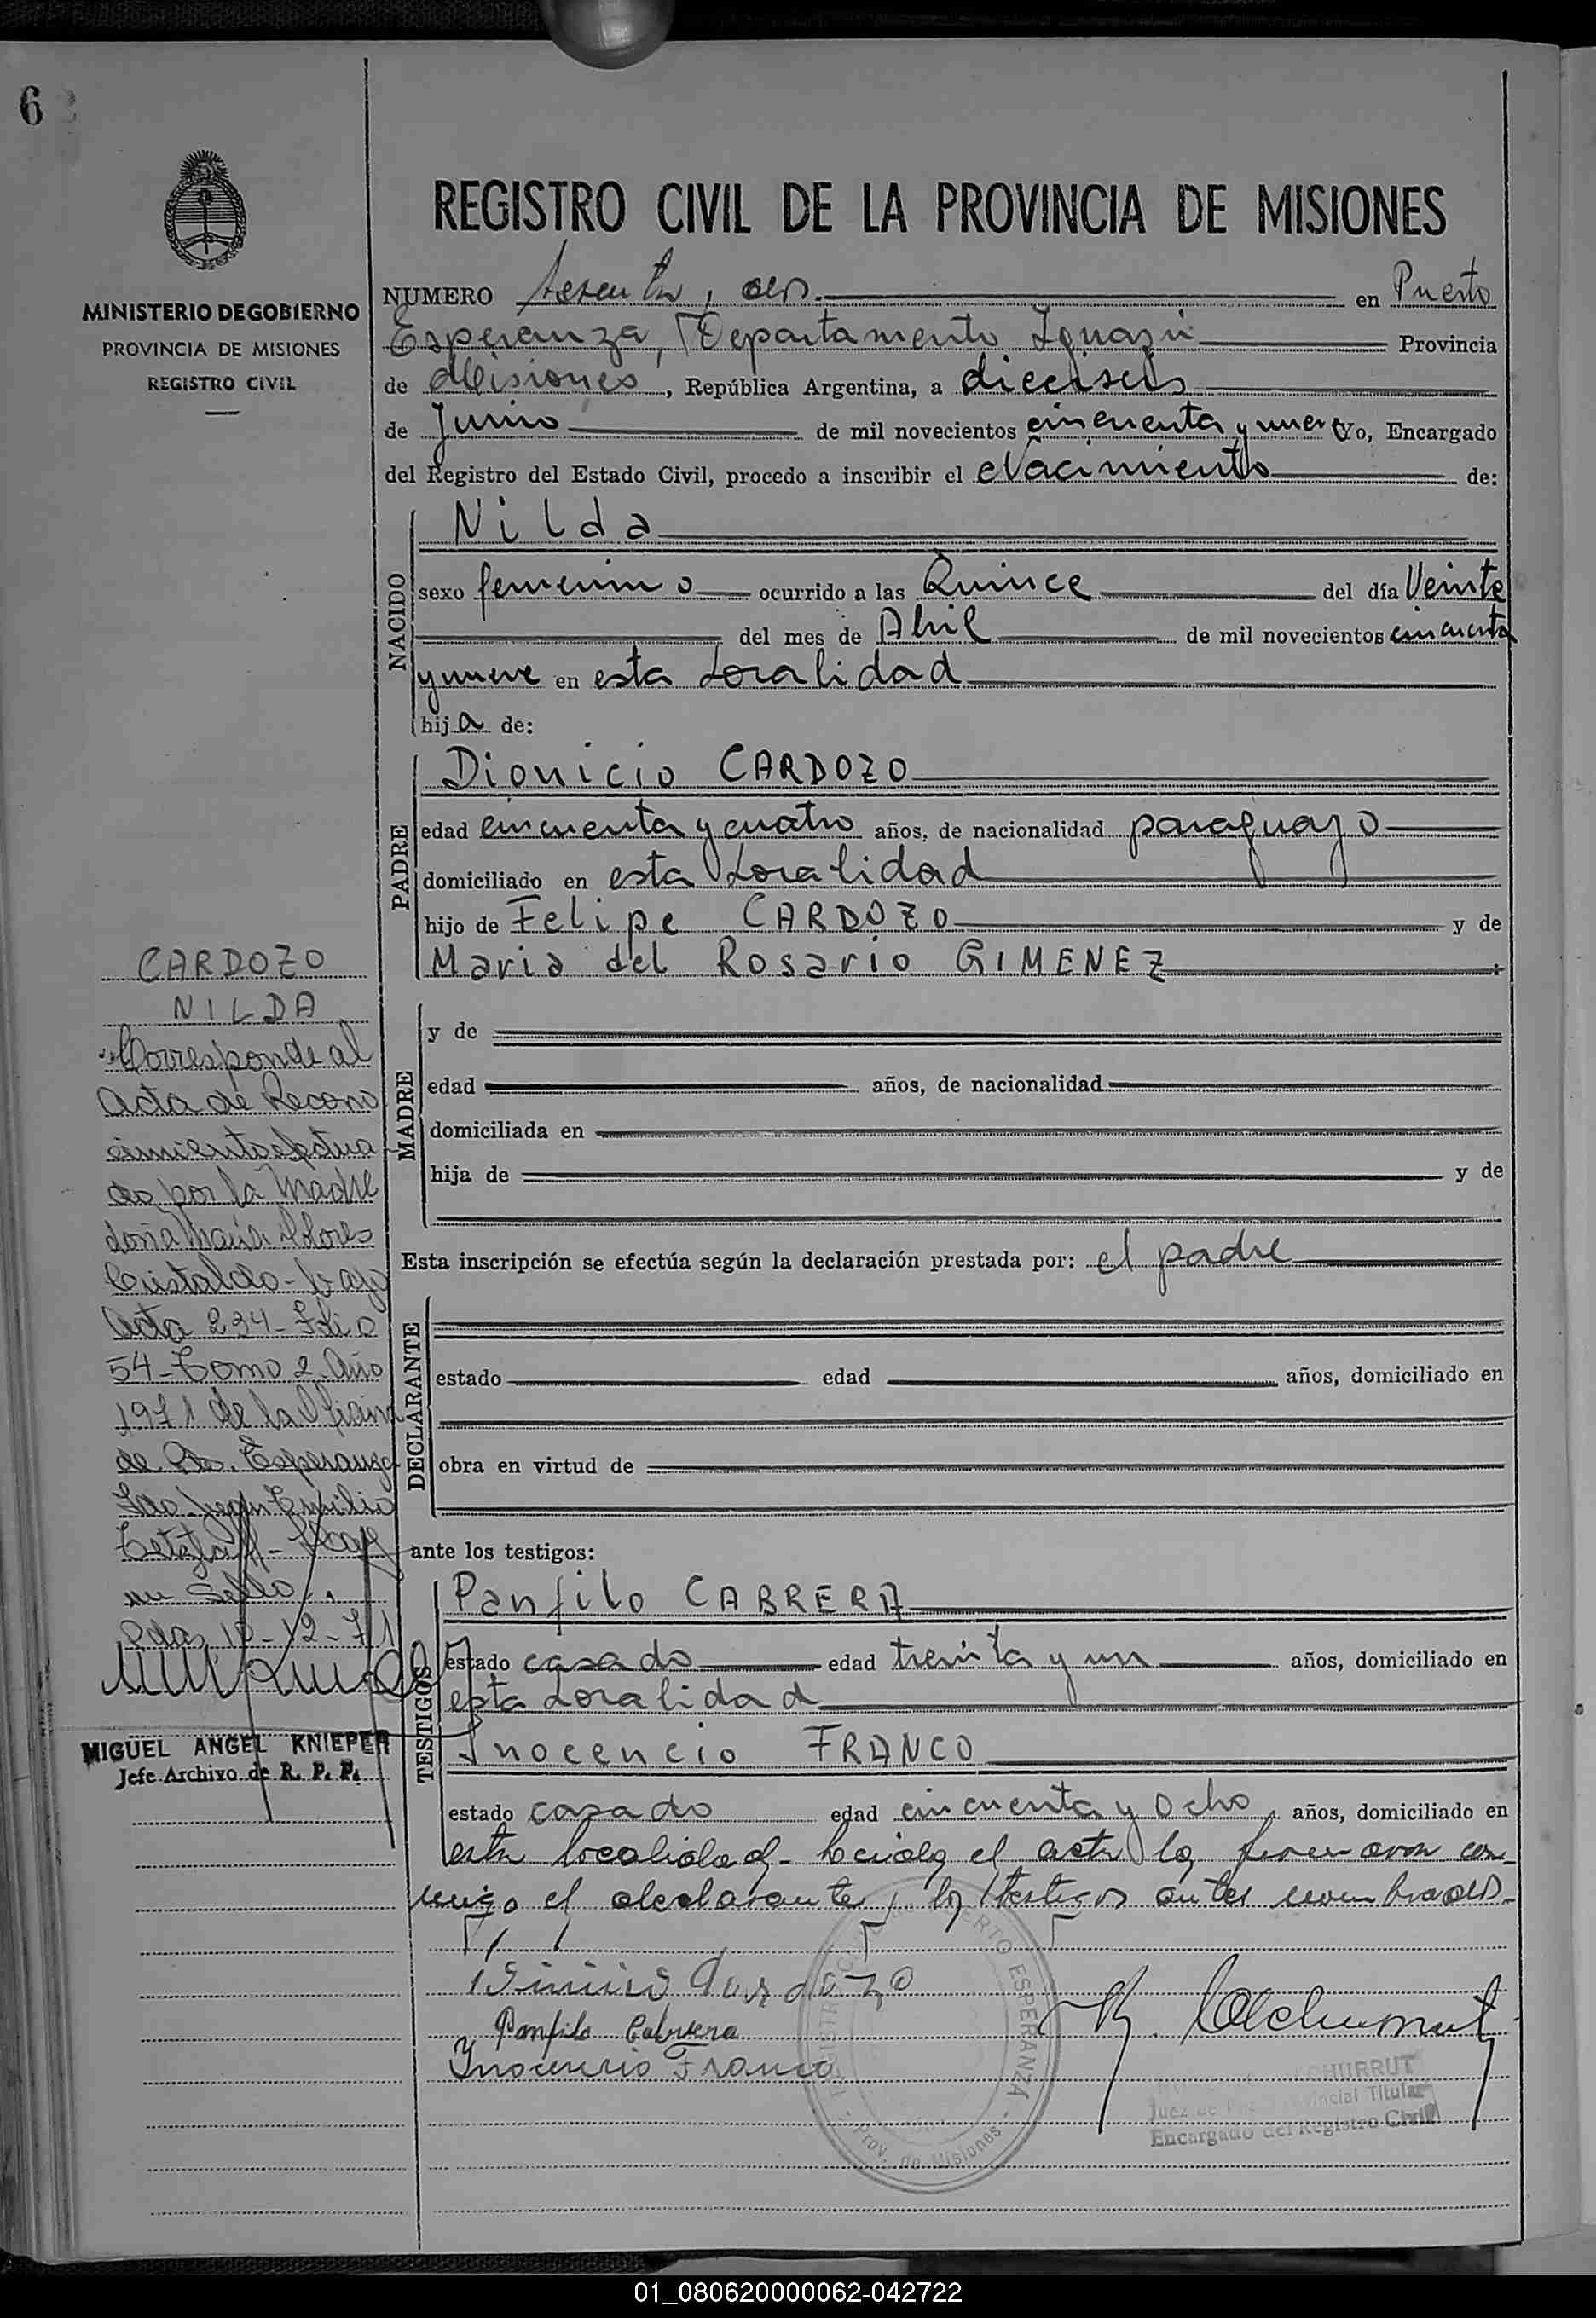 6
MINISTERIO DE GOBIERNO
PROVINCIA DE MISIONES
REGISTRO CIVIL
REGISTRO CIVIL DE LA PROVINCIA DE MISIONES
NUMERO Sesenta y dos. en Puerto
Esperanza, Departamento Iguazú Provincia
de Misiones, República Argentina, a dieciseis
de Junio de mil novecientos cincuenta y nueve Yo, Encargado
del Registro del Estado Civil, procedo a inscribir el Nacimiento de:
NACIDO
Nilda
sexo femenino ocurrido a las Quince del día Veinte
del mes de Abril de mil novecientos cincuenta
y nueve en esta Localidad
hija de:
PADRE
Dionicio CARDOZO
edad cincuenta y cuatro años, de nacionalidad paraguayo
domiciliado en esta Localidad
hijo de Felipe CARDOZO y de
Maria del Rosario GIMENEZ
MADRE
y de
edad años, de nacionalidad
domiciliada en
hija de y de
Esta inscripción se efectúa según la declaración prestada por: el padre
DECLARANTE
estado edad años, domiciliado en
obra en virtud de
ante los testigos:
TESTIGOS
Panfilo CABRERA
estado casado edad treinta y un años, domiciliado en
esta Localidad
Inocencio FRANCO
estado casado edad cincuenta y ocho, años, domiciliado en
esta localidad - Leida el acta la firmaron con-
migo el declarante y los testigos antes nombrados-
Cardozo
Panfilo Cabrera
Inocencio Franco
REGISTRO CIVIL PUERTO ESPERANZA
Prov. de Misiones
CHURRUT
Juez de Paz Provincial Titular
Encargado del Registro Civil
CARDOZO
NILDA
Corresponde al
Acta de Recono
cimiento efectua
do por la Madre
doña Maria
Cristaldo - bajo
Acta 234 - Folio
54 - Tomo 2 Año
1971 de la Oficina
de Pto. Esperanza
Fdo. Juan Emilio
- Hay
un Sello.
Pdas, 10-12-71
MIGUEL ANGEL KNIEPER
Jefe Archivo de R. P. P.
01_080620000062-042722